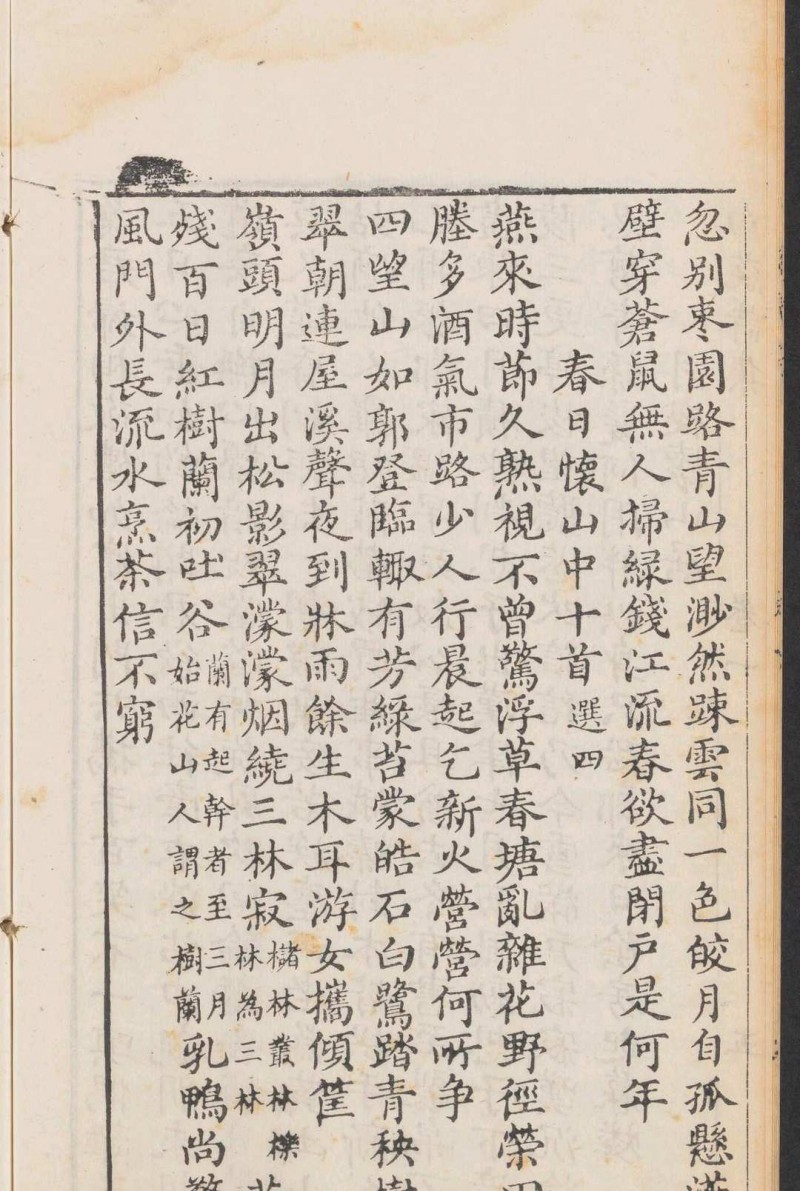 忽别枣園路青山望渺然踈雲同一色皎月自孤懸
壁穿蒼鼠無人掃綠錢江流春欲盡閉户是何年
春日懷山中十首選四
燕來時節久熟視不曾驚浮草春塘亂雜花野徑榮
塍多酒氣市路少人行晨起乞新火營營何所争
四望山如郭登臨輙有芳綠苔蒙皓石白鷺踏青秧
翠朝連屋溪聲夜到牀雨餘生木耳游女攜傾筐
嶺頭明月出松影翠濛濛烟繞三林寂櫧林叢林櫟林為三林
殘百日紅樹蘭初吐谷蘭有起幹者至三月始花山人謂之樹蘭乳鴨尚
風門外長流水烹茶信不窮